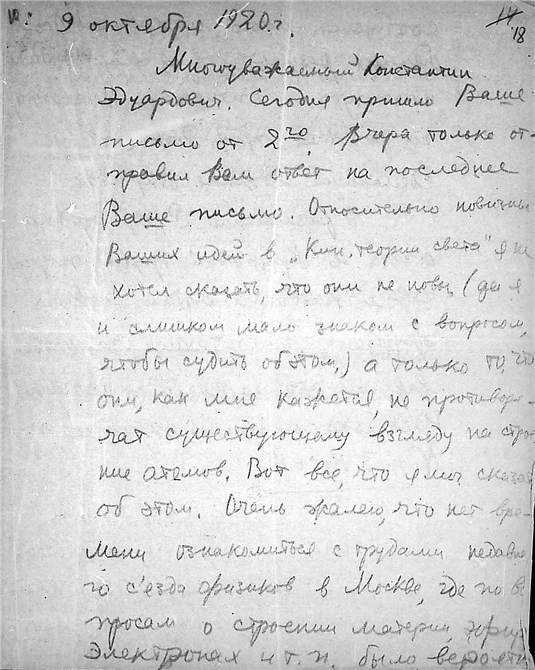 9 октября 1920 г.
14
18
Многоуважаемый Константин
Эдуардович. Сегодня пришло Ваше
письмо от 2го. Вчера только от-
правил Вам ответ на последнее
Ваше письмо. Относительно новизны
Ваших идей в „Кин. теории света" я не
хотел сказать, что они не новы (да я
и слишком мало знаком с вопросом,
чтобы судить об этом,) а только то, что
они, как мне кажется, не противоре-
чат существующему взгляду на строе
ние атомов. Вот все, что я мог сказат
об этом. Очень жалею, что нет вре-
мени ознакомиться с трудами недавне
го с'езда физиков в Москве, где по во
просам о строении материи, эфир
электронах и т. п. было вероятн